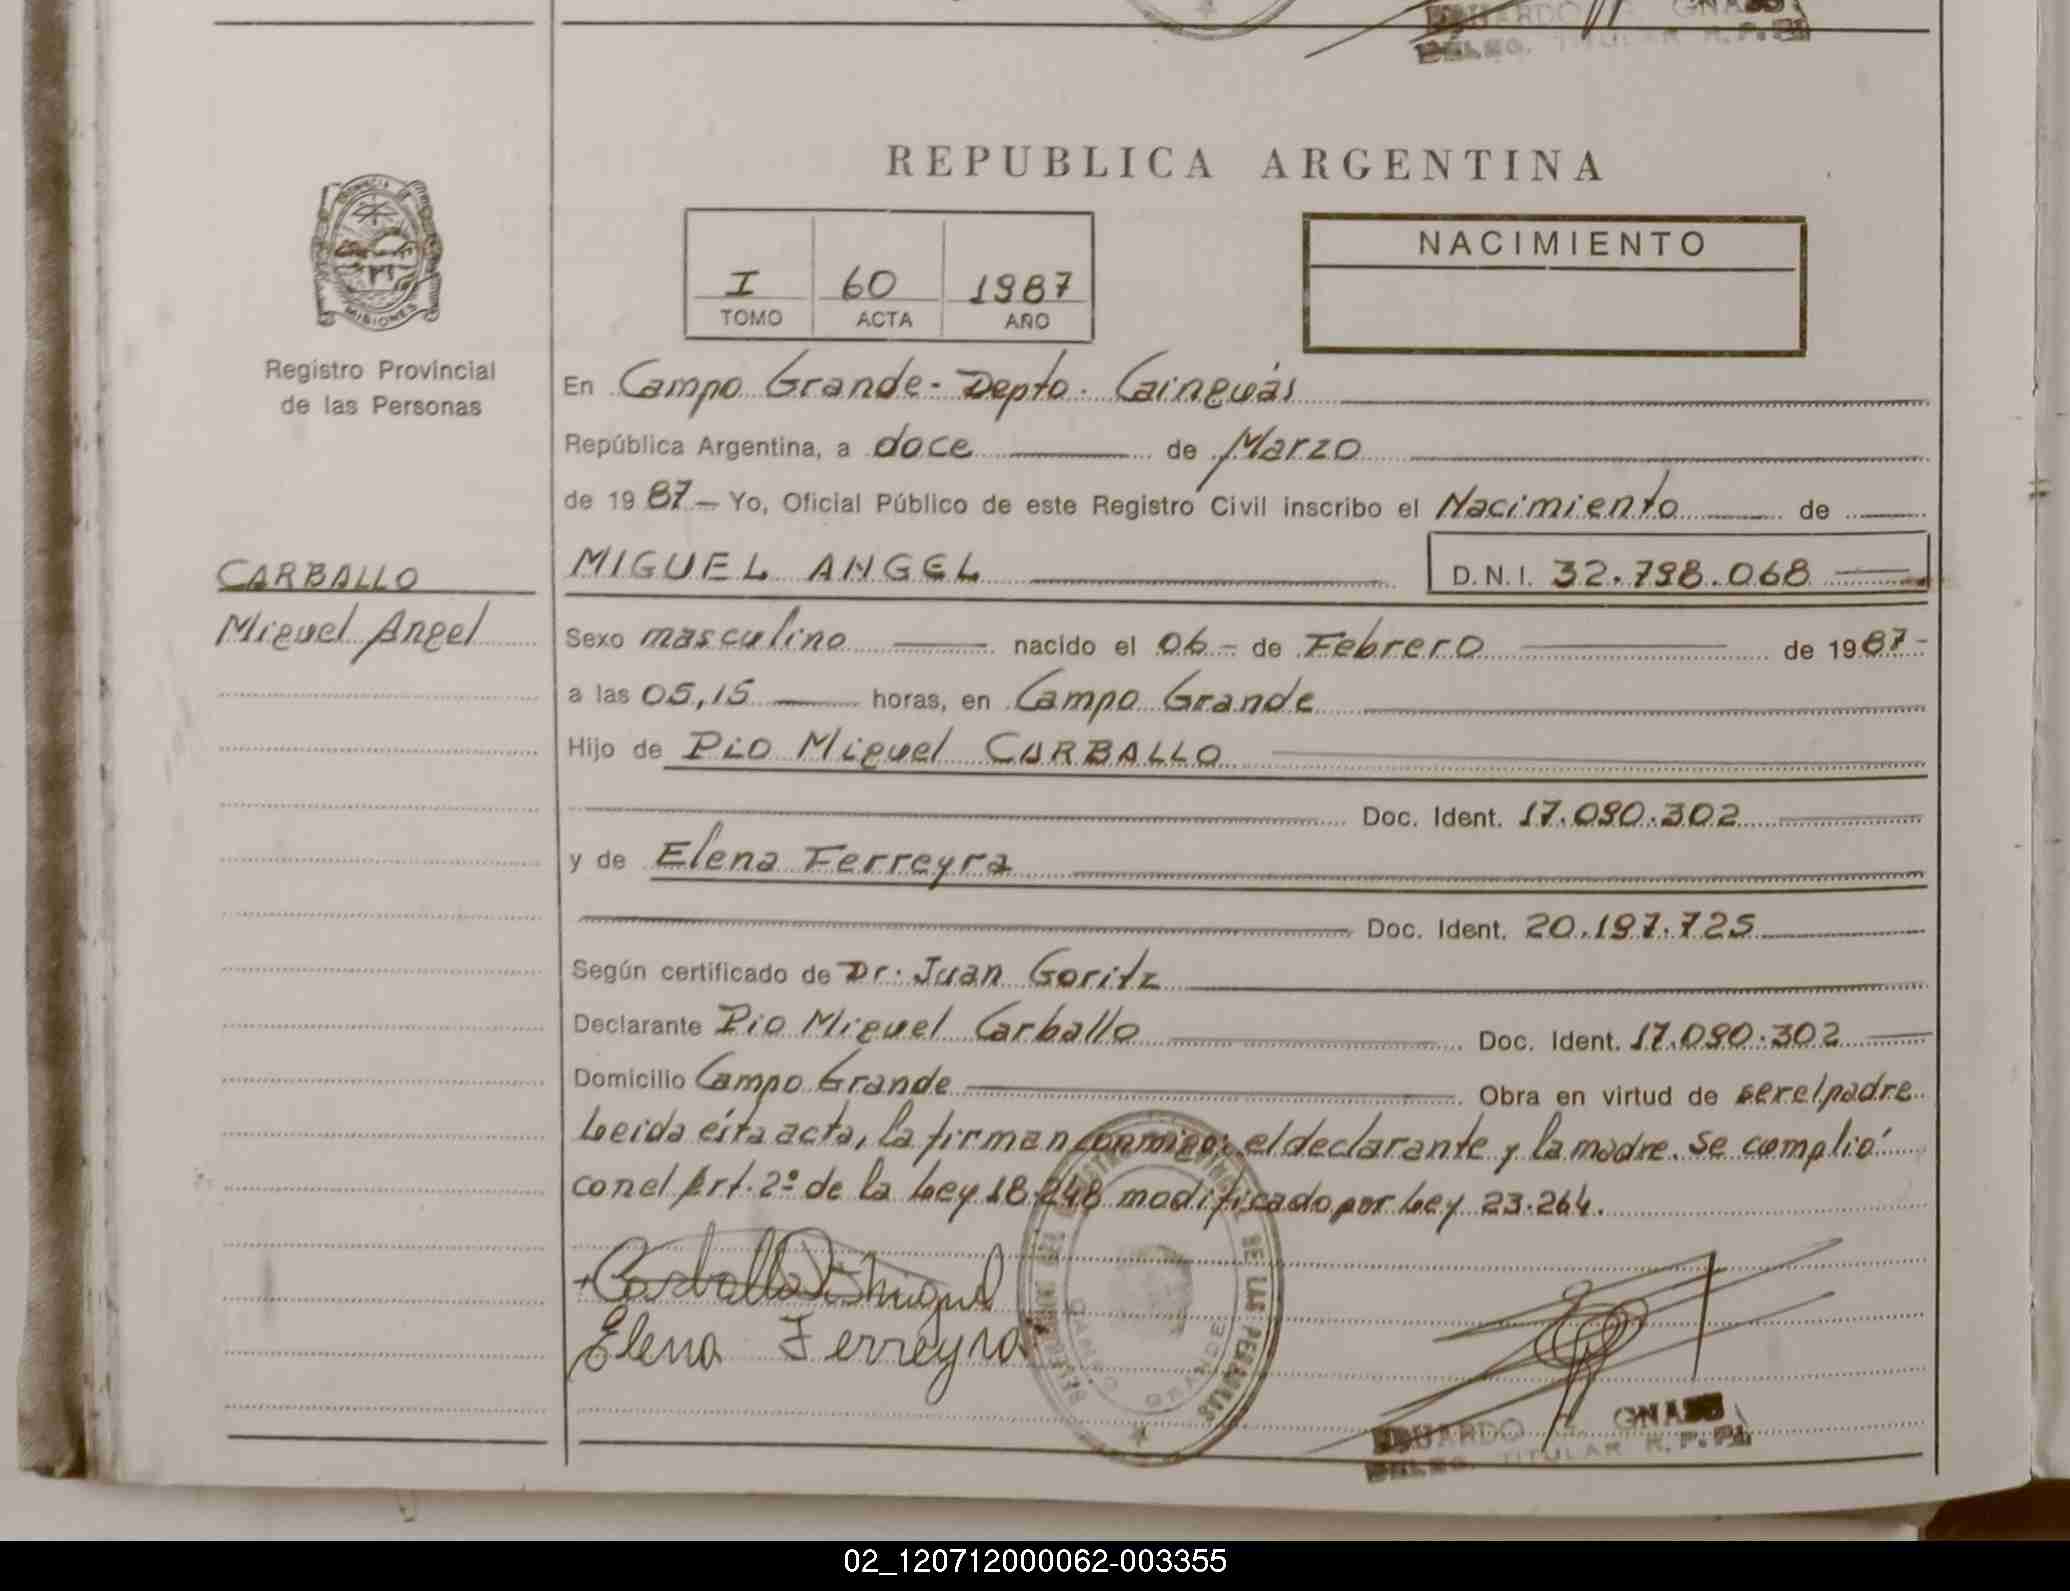 EDUARDO GNASS
DELEG. TITULAR R.P.P.
REPUBLICA ARGENTINA
PROVINCIA DE MISIONES
Registro Provincial
de las Personas
I 60 1987
TOMO ACTA AÑO
NACIMIENTO
En Campo Grande - Depto. Cainguás
República Argentina, a doce de Marzo
de 1987 - Yo, Oficial Público de este Registro Civil inscribo el Nacimiento de
CARBALLO
Miguel Angel
MIGUEL ANGEL D.N.I. 32.798.068
Sexo masculino nacido el 06 - de Febrero de 1987 -
a las 05,15 horas, en Campo Grande
Hijo de Pio Miguel CARBALLO
Doc. Ident. 17.090.302
y de Elena Ferreyra
Doc. Ident. 20.197.725
Según certificado de Dr: Juan Goritz
Declarante Pio Miguel Carballo Doc. Ident. 17.090.302
Domicilio Campo Grande Obra en virtud de ser el padre
Leida ésta acta, la firman conmigo: el declarante y la madre. Se complió
con el Art. 2º de la Ley 18.248 modificado por Ley 23.264.
Carballo Miguel
Elena Ferreyra
REGISTRO PROVINCIAL DE LAS PERSONAS
CAMPO GRANDE
EDUARDO GNASS
DELEG. TITULAR R.P.P.
02_120712000062-003355